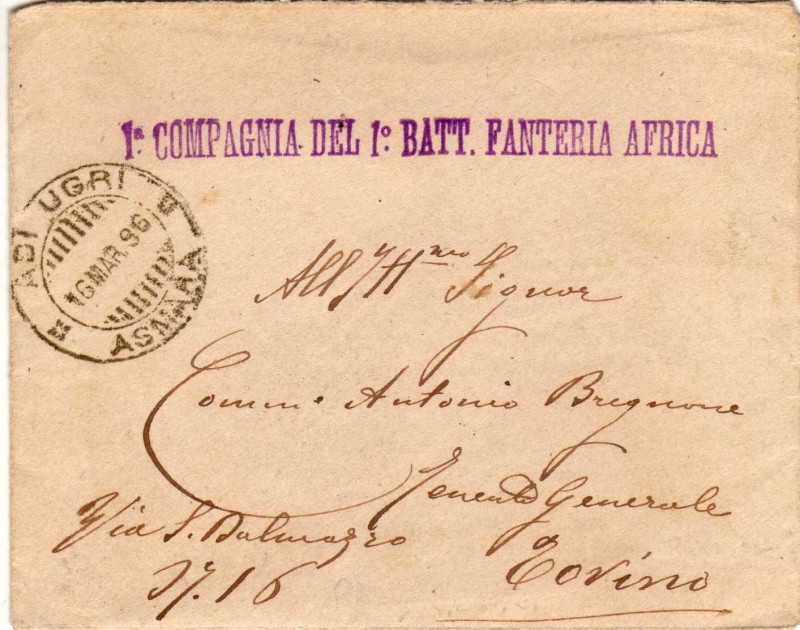 1ª COMPAGNIA DEL 1º BATT. FANTERIA AFRICA
ADI UGRI
16 MAR. 96
ASMARA
All'Ill.mo Signor
Comm.e Antonio Bregnone
Tenente Generale
Via S. Dalmazzo
N. 16
Torino